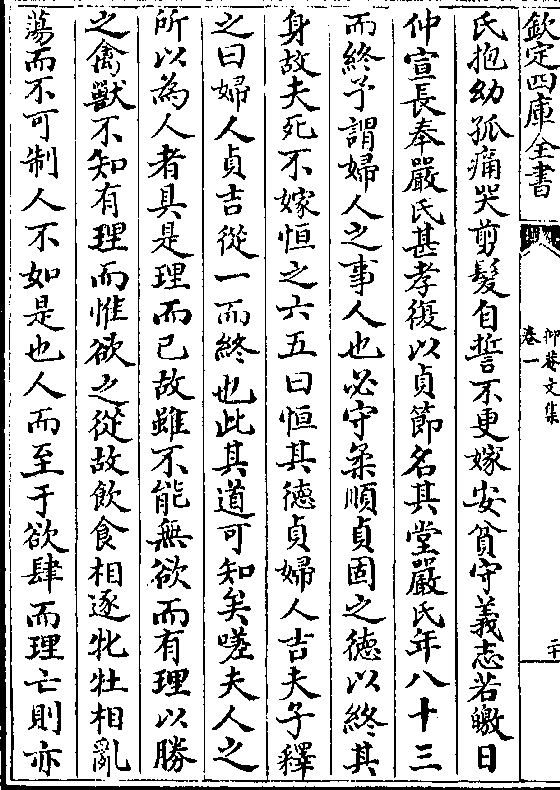 欽定四庫全書
仰菴文集
卷一
二十
氏抱幼孤痛哭剪髮自誓不更嫁安貧守義志若皦日
仲宣長奉嚴氏甚孝復以貞節名其堂嚴氏年八十三
而終予謂婦人之事人也必守柔順貞固之德以終其
身故夫死不嫁恒之六五曰恒其德貞婦人吉夫子釋
之曰婦人貞吉從一而終也此其道可知矣嗟夫人之
所以為人者具是理而已故雖不能無欲而有理以勝
之禽獸不知有理而惟欲之從故飲食相逐牝牡相亂
蕩而不可制人不如是也人而至于欲肆而理亡則亦